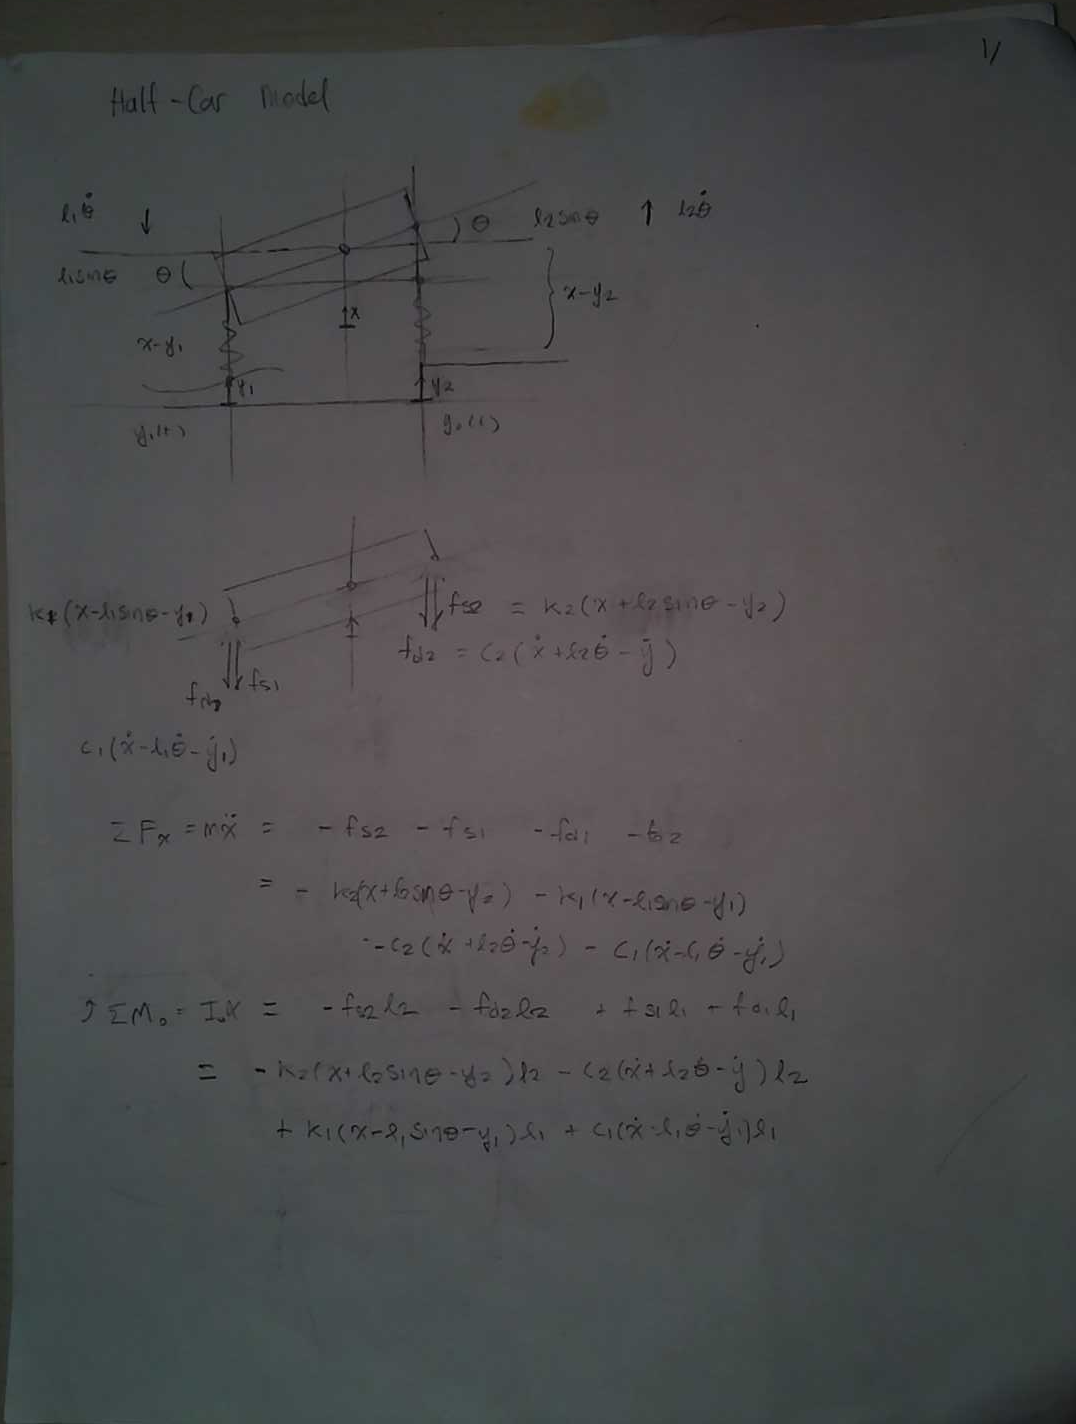 1/
Half-Car Model
l₁θ̇ ↓ θ l₂sinθ ↑ l₂θ̇
l₁sinθ θ
x-y₂
x
x-y₁
y₁ y₂
y₁(t)
k₁(x-l₁sinθ-y₁) fs2 = k₂(x+l₂sinθ-y₂)
fd2 = c₂(ẋ+l₂θ̇-ẏ)
fs1
c₁(ẋ-l₁θ̇-ẏ₁)
ΣFx = mẍ = -fs2 -fs1 -fd1 -fd2
= -k₂(x+l₂sinθ-y₂) -k₁(x-l₁sinθ-y₁)
-c₂(ẋ+l₂θ̇-ẏ₂) - c₁(ẋ-l₁θ̇-ẏ₁)
ΣM₀ = I₀α = -fs2l₂ - fd2l₂ + fs1l₁ + fd1l₁
= -k₂(x+l₂sinθ-y₂)l₂ - c₂(ẋ+l₂θ̇-ẏ)l₂
+ k₁(x-l₁sinθ-y₁)l₁ + c₁(ẋ-l₁θ̇-ẏ₁)l₁